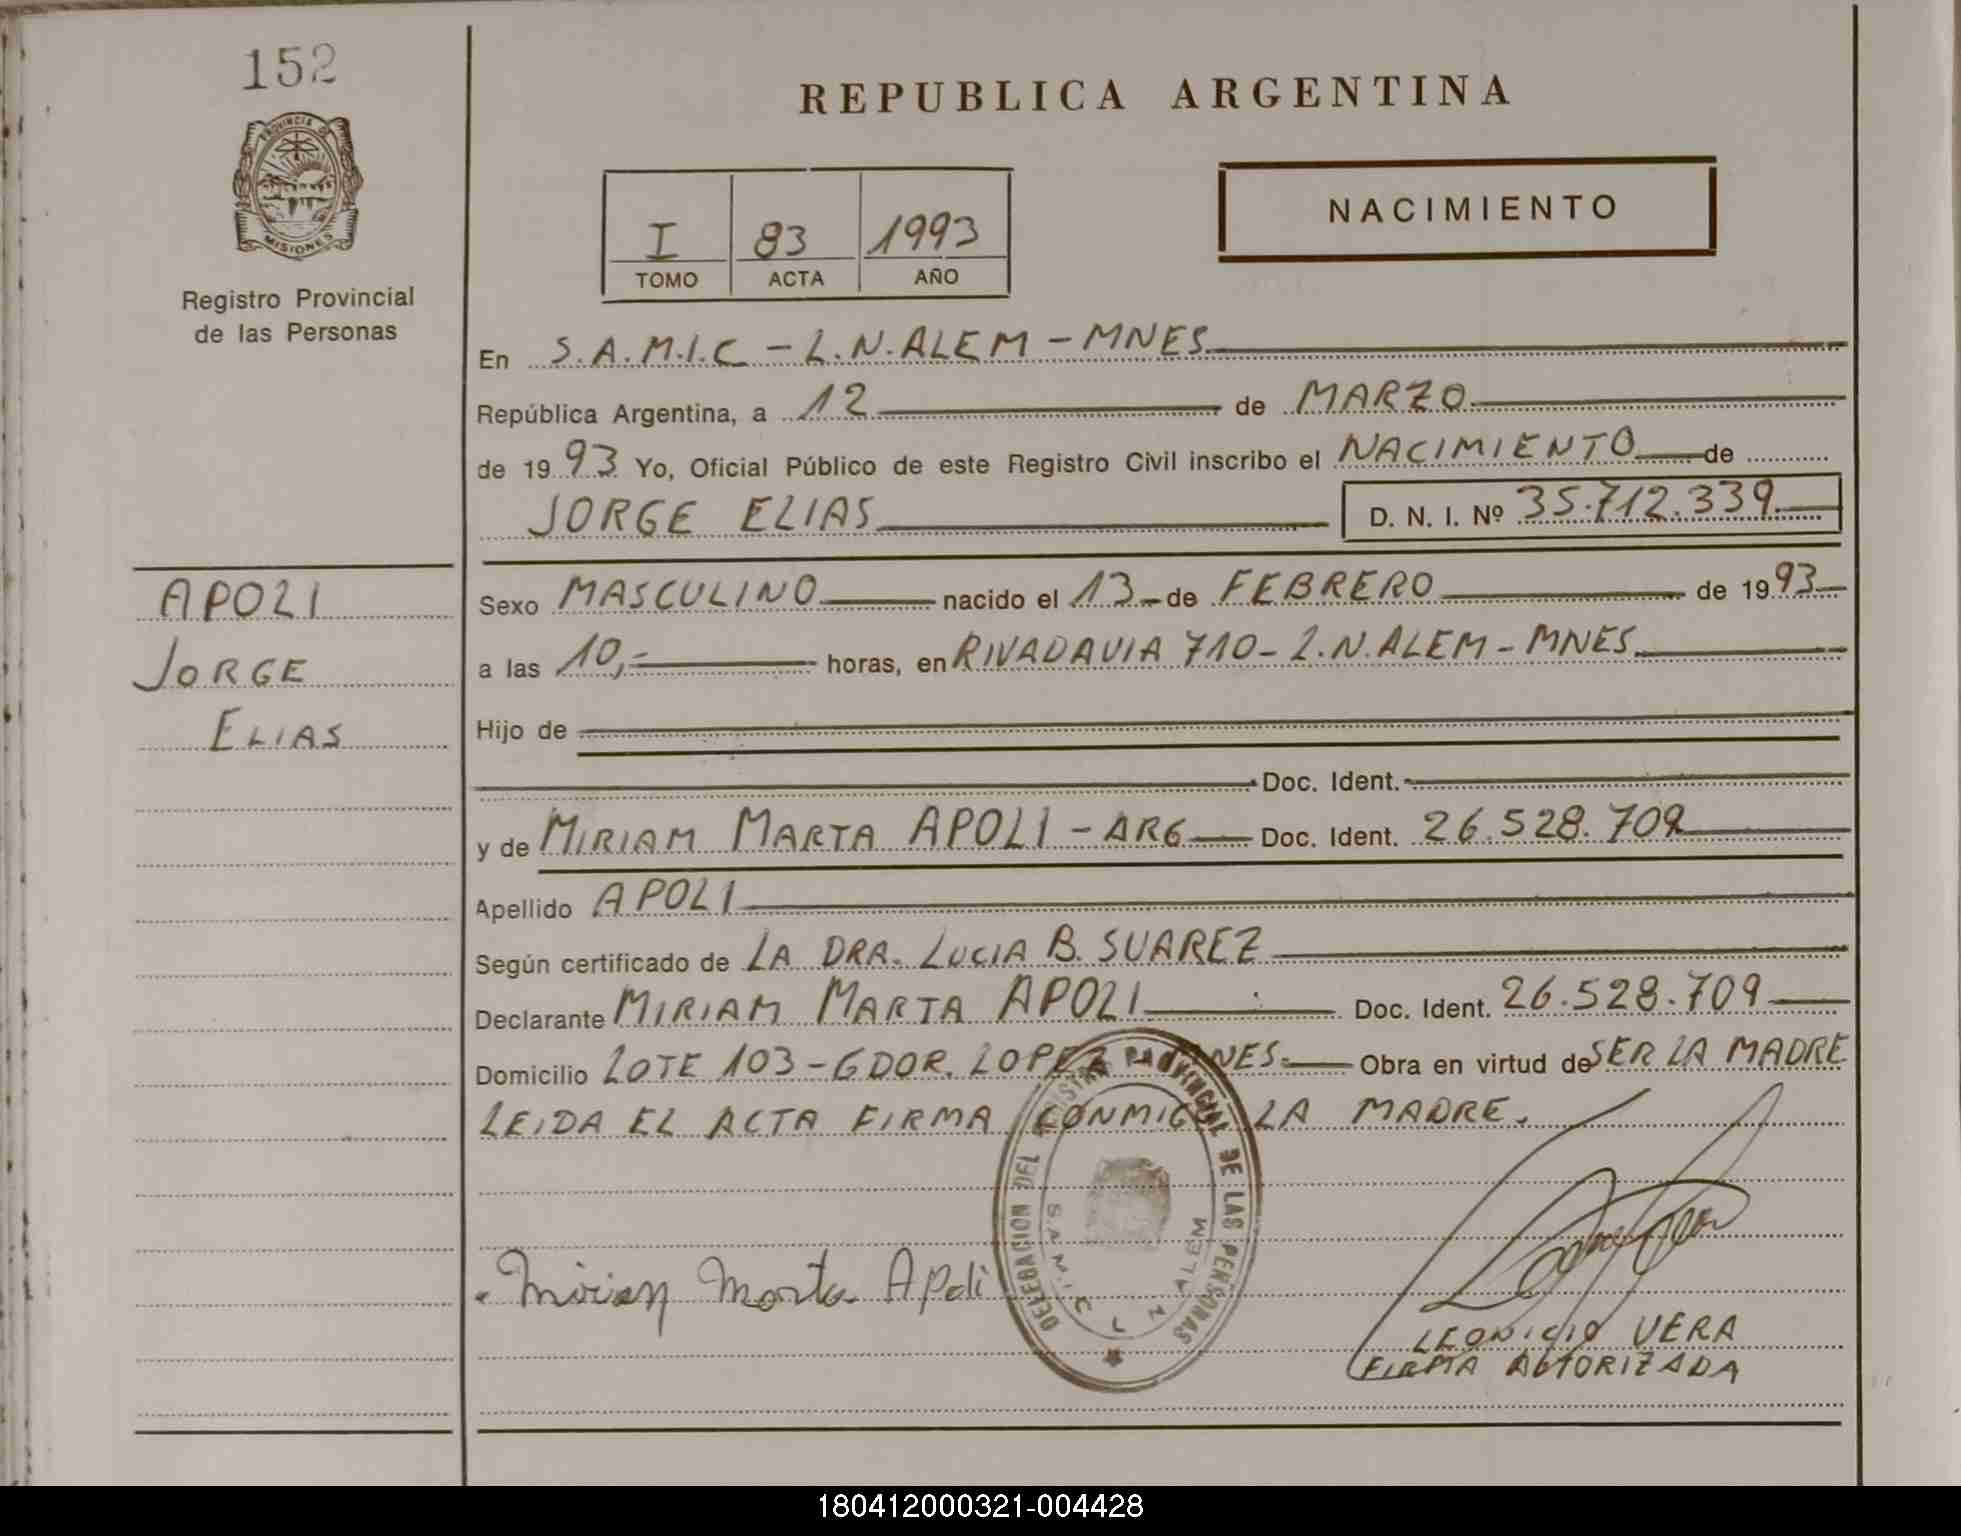 152
PROVINCIA DE
MISIONES
Registro Provincial
de las Personas
REPUBLICA ARGENTINA
I 83 1993
TOMO ACTA AÑO
NACIMIENTO
En S.A.M.I.C - L.N.ALEM - MNES
República Argentina, a 12 de MARZO
de 1993 Yo, Oficial Público de este Registro Civil inscribo el NACIMIENTO de
JORGE ELIAS D. N. I. Nº 35.712.339
APOLI
JORGE
ELIAS
Sexo MASCULINO nacido el 13 de FEBRERO de 1993
a las 10,- horas, en RIVADAVIA 710 - L.N.ALEM - MNES
Hijo de
Doc. Ident.
y de MIRIAM MARTA APOLI - ARG Doc. Ident. 26.528.709
Apellido APOLI
Según certificado de LA DRA. LUCIA B. SUAREZ
Declarante MIRIAM MARTA APOLI Doc. Ident. 26.528.709
Domicilio LOTE 103 - GDOR. LOPEZ - MNES. Obra en virtud de SER LA MADRE
LEIDA EL ACTA FIRMA CONMIGO LA MADRE.
DELEGACION DEL REGISTRO PROVINCIAL DE LAS PERSONAS
S.A.M.I.C L N ALEM
Miriam Marta Apoli
LEONICIO VERA
FIRMA AUTORIZADA
180412000321-004428